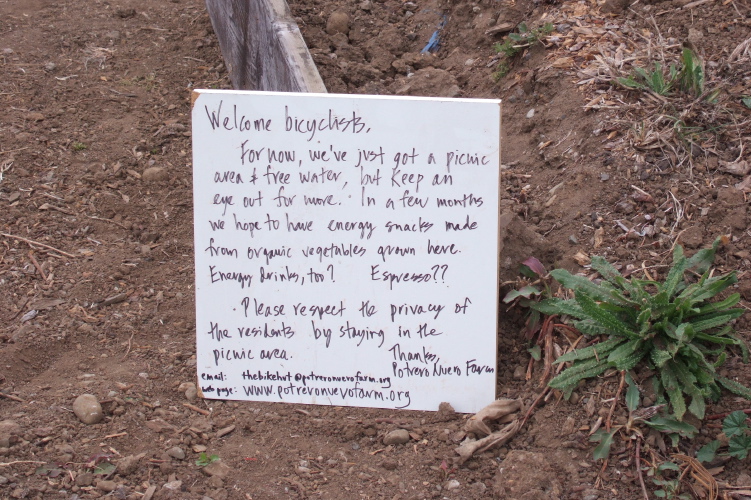 Welcome bicyclists,
For now, we've just got a picnic
area & free water, but keep an
eye out for more. In a few months
we hope to have energy snacks made
from organic vegetables grown here.
Energy drinks, too? Espresso??
Please respect the privacy of
the residents by staying in the
picnic area.
Thanks,
Potrero Nuevo Farm
email: thebikehut@potreronuevofarm.org
web page: www.potreronuevofarm.org